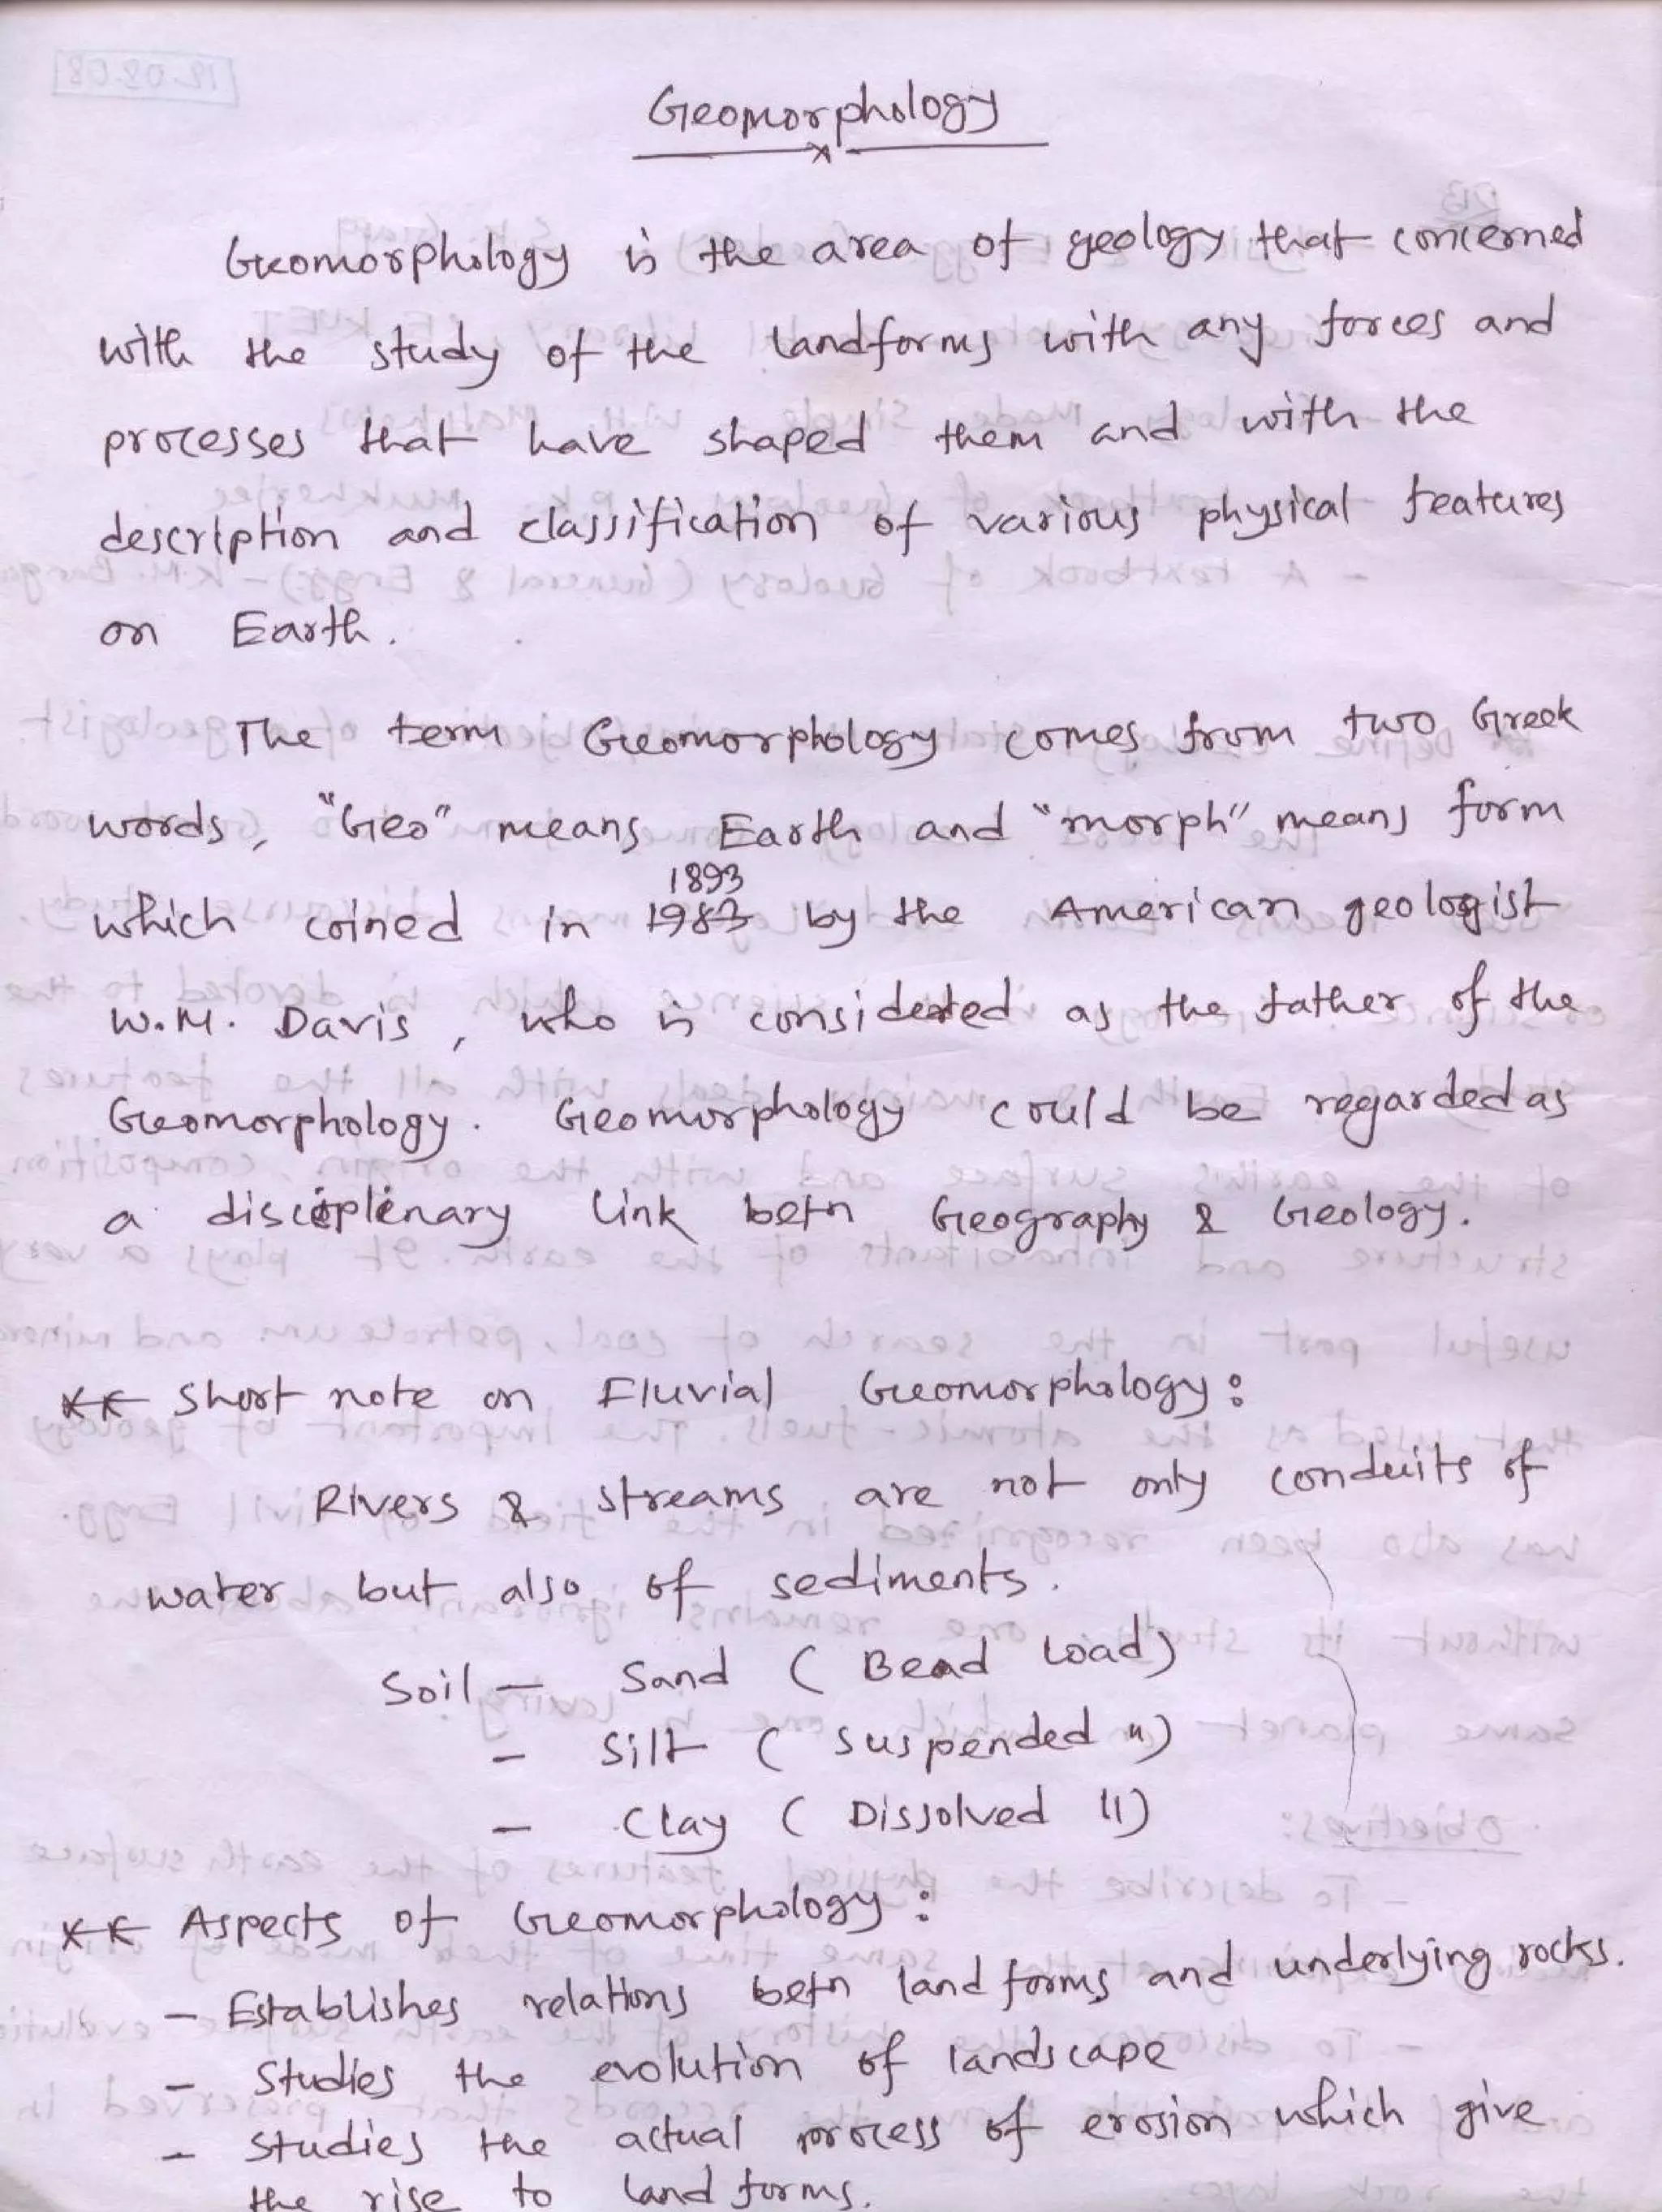 Geomorphology
Geomorphology is the area of geology that concerned
with the study of the landforms with any forces and
processes that have shaped them and with the
description and classification of various physical features
on Earth.
The term Geomorphology comes from two Greek
words, "Geo" means Earth and "morph" means form
1893
which coined in 1983 by the American geologist
W.M. Davis, who is considered as the father of the
Geomorphology. Geomorphology could be regarded as
a disciplinary link betn Geography & Geology.
** Short note on Fluvial Geomorphology:
Rivers & streams are not only conduits of
water but also of sediments.
Soil - Sand (Bead Load)
- Silt (Suspended ")
- Clay (Dissolved ")
** Aspects of Geomorphology:
- Establishes relations betn landforms and underlying rocks.
- Studies the evolution of landscape
- Studies the actual process of erosion which give
the rise to landforms.